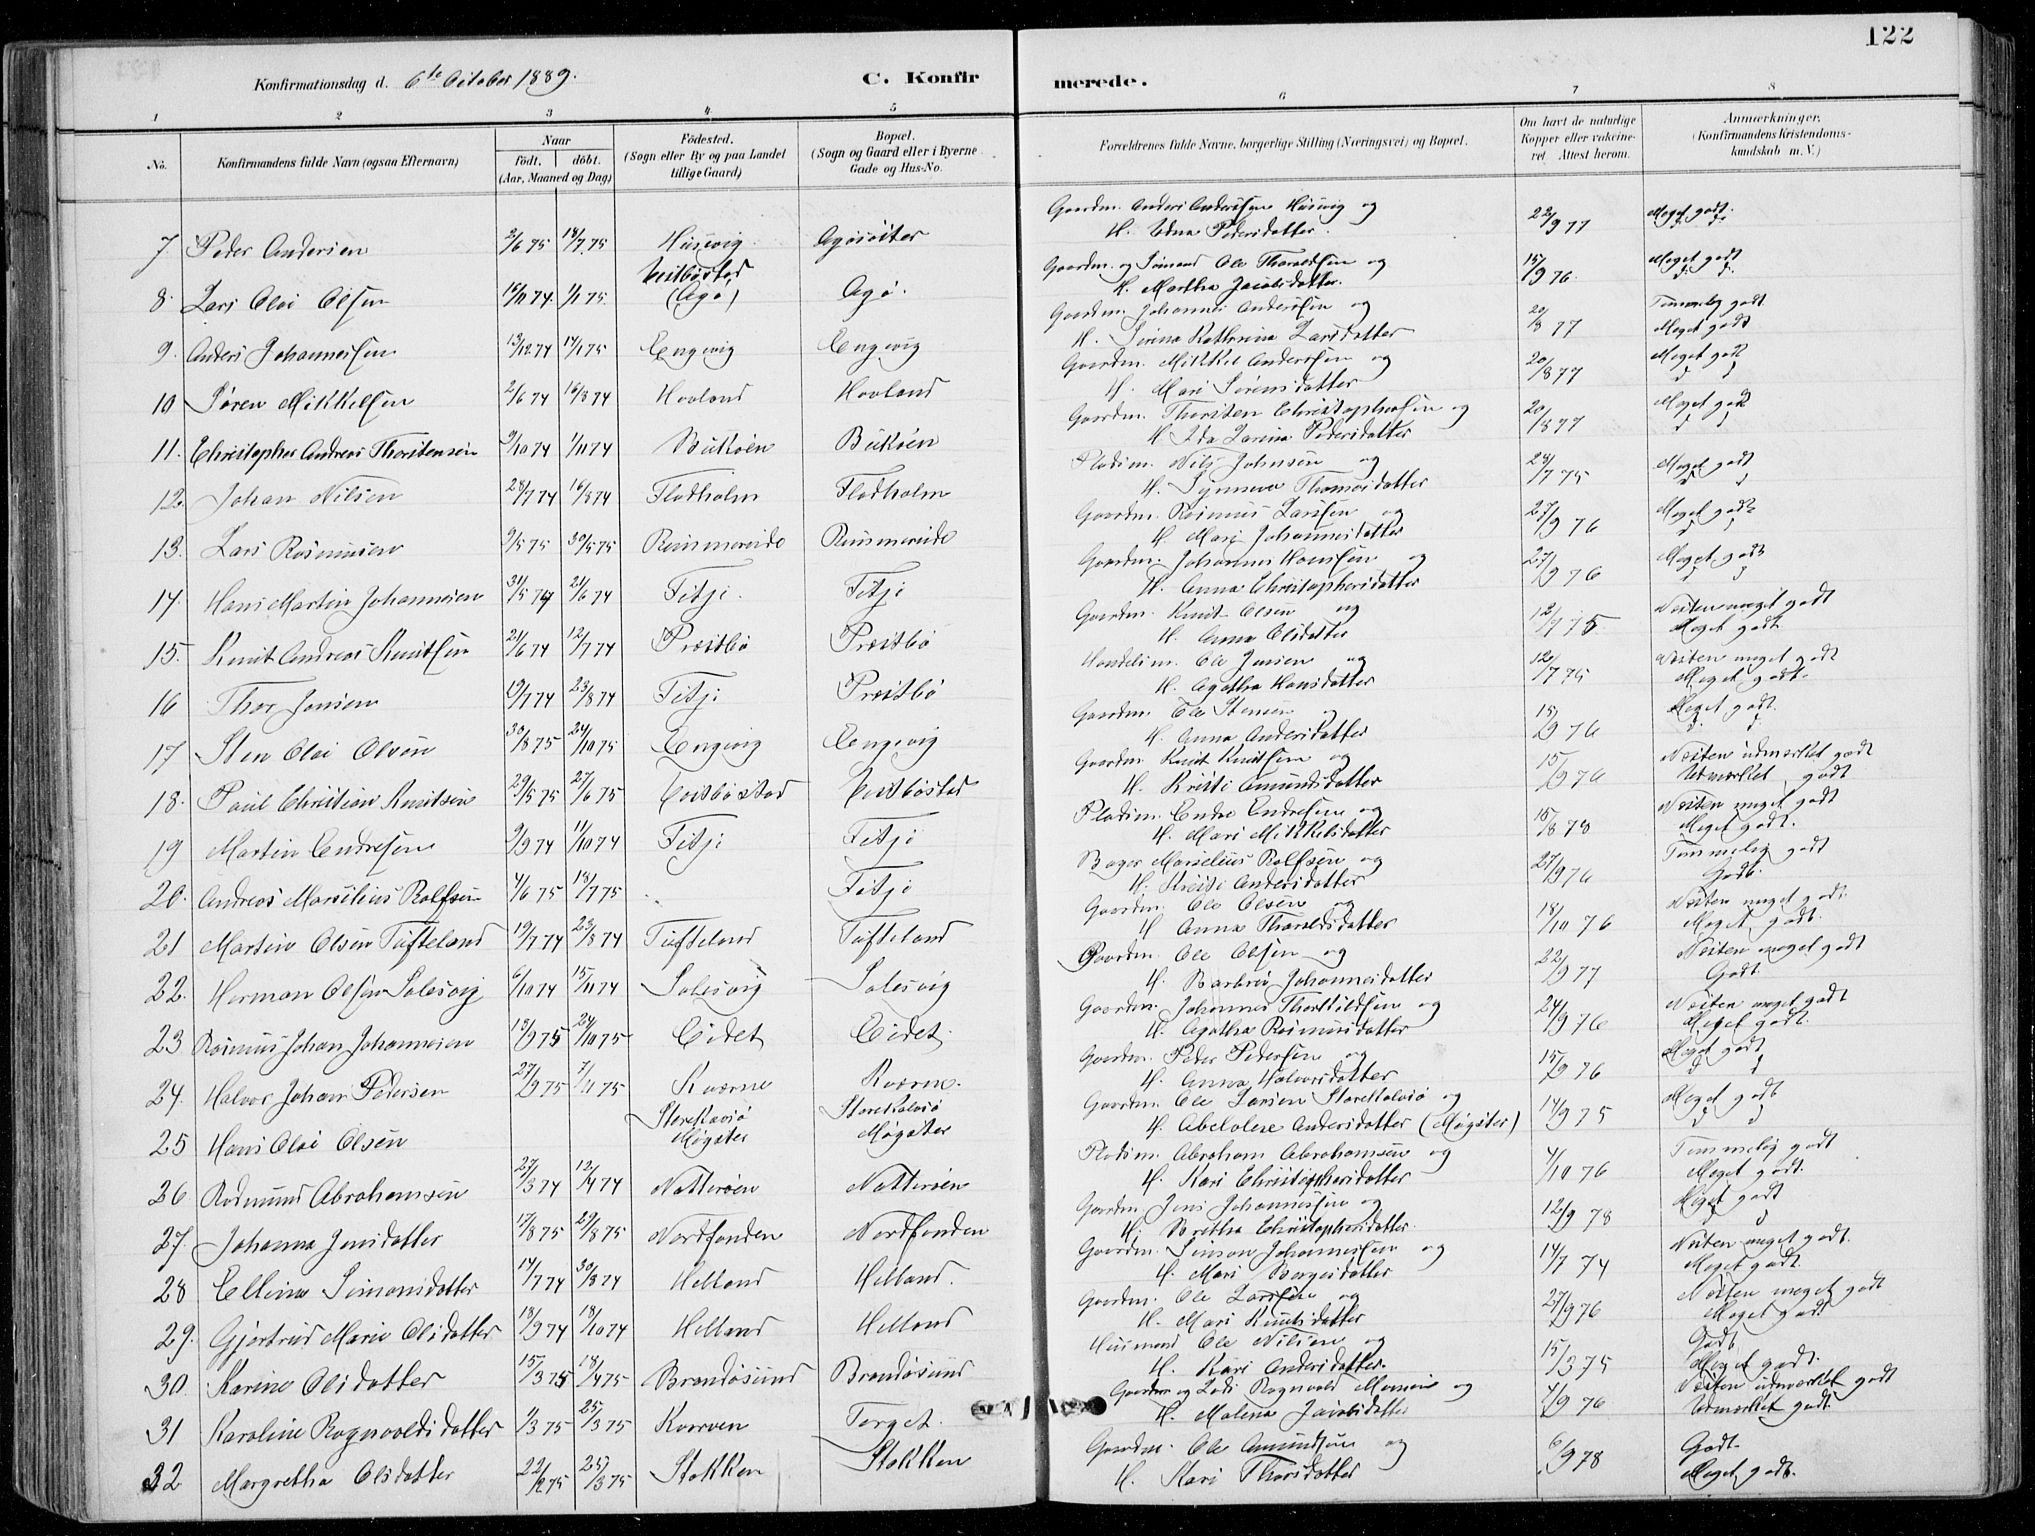 122
Konfirmationsdag d. 6te October 1889.
C. Konfirmerede.
1 2 3 4 5 6 7 8
No.
Konfirmandens fulde Navn (ogsaa Efternavn)
Naar
födt. döbt.
(Aar, Maaned og Dag)
Födested.
(Sogn eller By og paa Landet
tillige Gaard)
Bopæl.
(Sogn og Gaard eller i Byerne
Gade og Hus-No.
Forældrenes fulde Navne, borgerlige Stilling (Næringsvei) og Bopæl.
Om havt de naturlige
Kopper eller vakcine-
ret. Attest herom.
Anmærkninger.
(Konfirmandens Kristendoms-
kundskab m. V.)
Gaardm. Anders Andersen Husevig og
7 Peder Andersen 2/6 75 18/7 75 Husevig Agösæter H. Edna Pedersdatter. 22/9 77 Meget godt.
Vestbøstad Gaardm. og Sömand Ole Thoraldsen og Meget godt
8. Lars Olai Olsen 15/11 74 1/1 75 (Agö) Agö. H. Martha Jacobsdatter. 15/9 76
Gaardm. Johannes Andersen og Temmelig godt
9. Anders Johannessen 13/12 74 17/1 75 Engevig Engevig H. Serina Kathrina Larsdatter 20/8 77 Meget godt
Gaardm. Mikkel Anderssen og Meget godt
10 Sören Mikkelsen 2/6 74 16/8 74 Hovland Hovland H. Mari Sörensdatter 20/8 77
Gaardm. Thorsten Christophersen og Meget godt
11. Christopher Andreas Thorstensen 9/10 74 1/11 74 Buköen Buköen H. Ida Larina Pedersdatter 20/8 77
Pladsm. Nils Johnsen og Meget godt
12. Johan Nilsen 28/7 74 16/8 74 Flatholm Flatholm H. Synneva Thomasdatter 28/7 75
Gaardm. Rasmus Larssen og Meget godt
13. Lars Rasmusen 9/5 75 30/5 75 Rimmereide Rimmereide H. Mari Johannesdatter 27/9 76
Gaardm. Johannes Hanssen og Meget godt
14. Hans Martin Johannesen 31/5 74 21/6 74 Fitje. Fitje H. Anna Christophersdatter 27/9 76
Gaardm. Knut Olsen og Næsten meget godt
15. Knut Andreas Knutsen 21/6 74 12/7 74 Præstbö Præstbö H. Anna Olsdatter 12/7 75 Meget godt.
Handelsm. Ole Jensen og Næsten meget godt
16 Thor Jensen 19/7 74 23/8 74 Fitje Præstbö H. Agatha Hansdatter 12/7 75 Meget godt.
Gaardm. Ole Stensen og Meget godt.
17 Sten Olai Olsen 30/8 75 24/10 75 Engevig Engevig H. Anna Andersdatter 15/9 76
Gaardm. Knut Knutsen og Næsten udmærket godt
18. Paul Christian Knutsen 29/5 75 27/6 75 Vestbøstad Vestbøstad H. Kristi Amundsdatter 15/9 76 Udmærket godt
Pladsm. Endre Endresen og Næsten meget godt
19 Martin Endresen 9/9 74 11/10 74 Fitje Fitje H. Mari Mikkelsdatter 18/8 78 Meget godt.
Bager Marselius Rolfsen og Temmelig godt
20. Andreas Marselius Rolfsen 4/6 75 18/7 75 Fitje H. Kristi Andersdatter 27/9 76 Godt.
Gaardm. Ole Olsen og Næsten meget godt
21 Martin Olsen Tufteland 19/7 74 23/8 74 Tufteland Tufteland H. Anna Tharaldsdatter 18/10 76 Meget godt.
Gaardm. Ole Olsen og Næsten meget godt
22. Herman Olsen Salesvig 6/10 74 15/11 74 Salesvig Salesvig H. Barbra Johannesdatter 22/9 77 Godt.
Gaardm. Johannes Thorkildsen og Næsten meget godt
23 Rasmus Johan Johannesen 15/9 75 24/10 75 Eidet Eidet. H. Agatha Rasmusdatter 24/9 76 Meget godt.
Gaardm. Peder Pedersen og Meget godt
24. Halvor Johan Pedersen 27/9 75 7/11 75 Kværne Kværne. H. Anna Halvorsdatter 15/9 76
Storekalsö Storekalvsö Gaardm. Ole Larsen Storekalvsö og Meget godt
25 Hans Olai Olsen Møgster Møgster H. Abelolene Andersdatter (Møgster) 14/9 75
Pladsm. Abraham Abrahamsen og Temmelig godt
26 Rodmund Abrahamsen 27/3 74 12/4 74 Nattersöen Nattersöen H. Kari Christophersdatter 4/10 76 Meget godt.
Gaardm. Jens Johannessen og Meget godt
27. Johanna Jensdatter 17/8 75 29/8 75 Nordfonden Nordfonden H. Brithe Christophersdatter. 12/9 78
Gaardm. Simon Johannessen og Næsten meget godt.
28 Ellina Simonsdatter 14/7 74 30/8 74 Helland Helland. H. Mari Børgesdatter 14/7 74 Meget godt.
Gaardm. Ole Larssen og Næsten meget godt
29. Gjertrud Marie Olsdatter 18/9 74 18/10 74 Helland Helland H. Mari Knutsdatter 27/9 76 Meget godt
Husmand Ole Nilsen og Godt
30. Karine Olsdatter 15/3 75 18/4 75 Brandøsund Brandøsund H. Kari Andersdatter. 15/3 75 Meget godt.
Gaardm. og Lods Rognvald Monsen og Næsten udmærket godt
31 Karoline Rognvaldsdatter 1/3 75 25/3 75 Korsven Torget. H. Malena Jacobsdatter 4/9 76 Udmærket godt.
Gaardm. Ole Amundsen og Godt.
32 Margretha Olsdatter 22/2 75 25/3 75 Stokken Stokken H. Kari Thorsdatter 6/9 78 Meget godt.